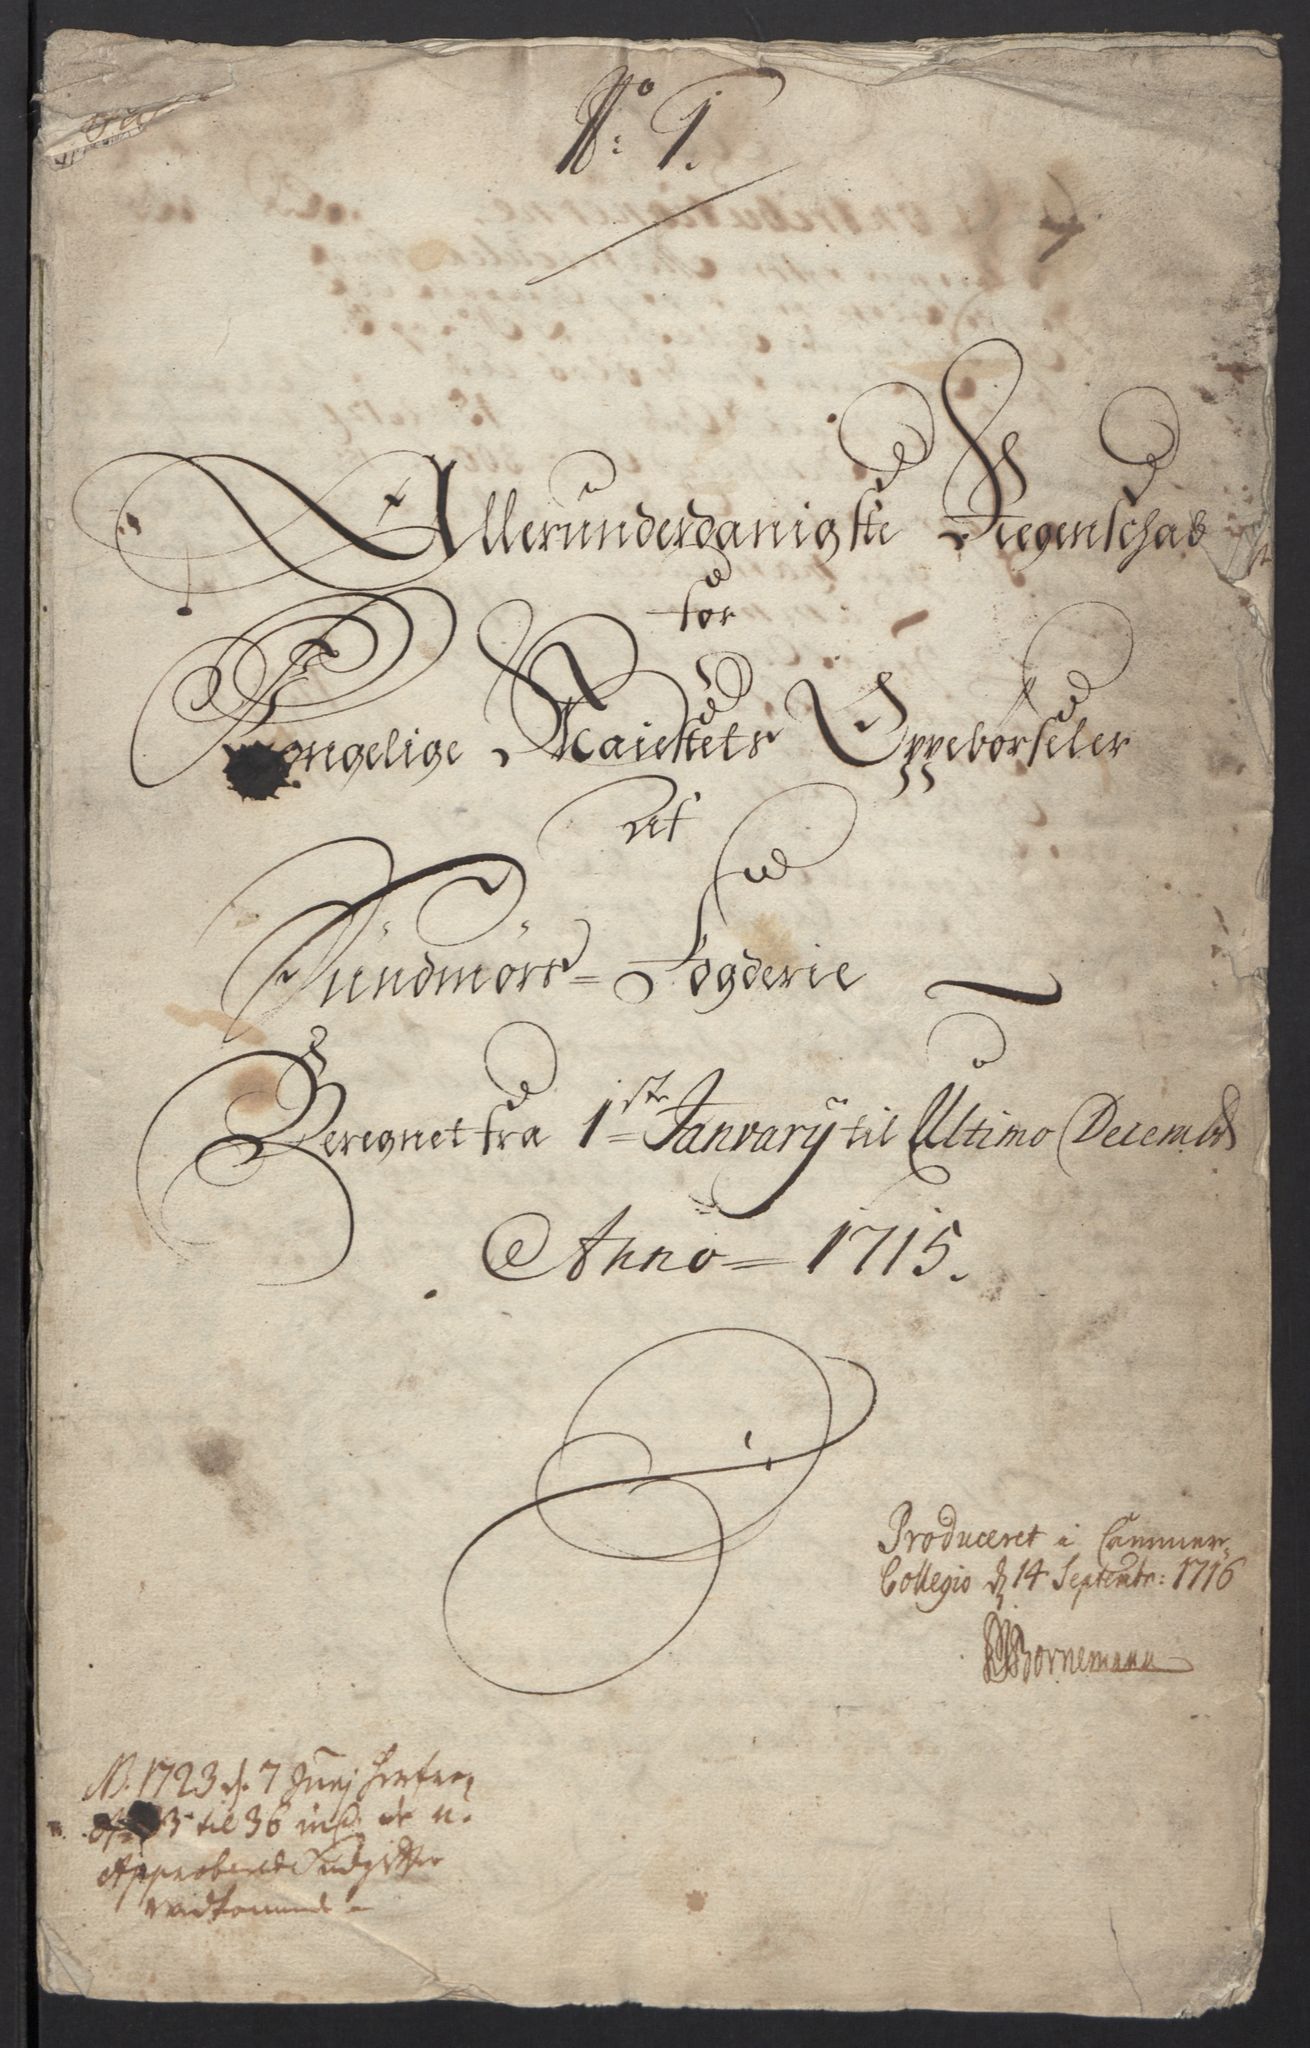 No: 1.
Allerunderdanigste Regenschab
for
Kongelige Maiestets Oppebørseler
Af
Sundmørs= Fogderie
Beregnet fra 1ste= Januarij til Ultimo Decembr
Anno= 1715.
Produceret i Cammer-
Collegio d 14 Septembr: 1716
Bornemann
NB. 1723 d. 7 Junij
til 36
Approberede Udgifter
vedkommende